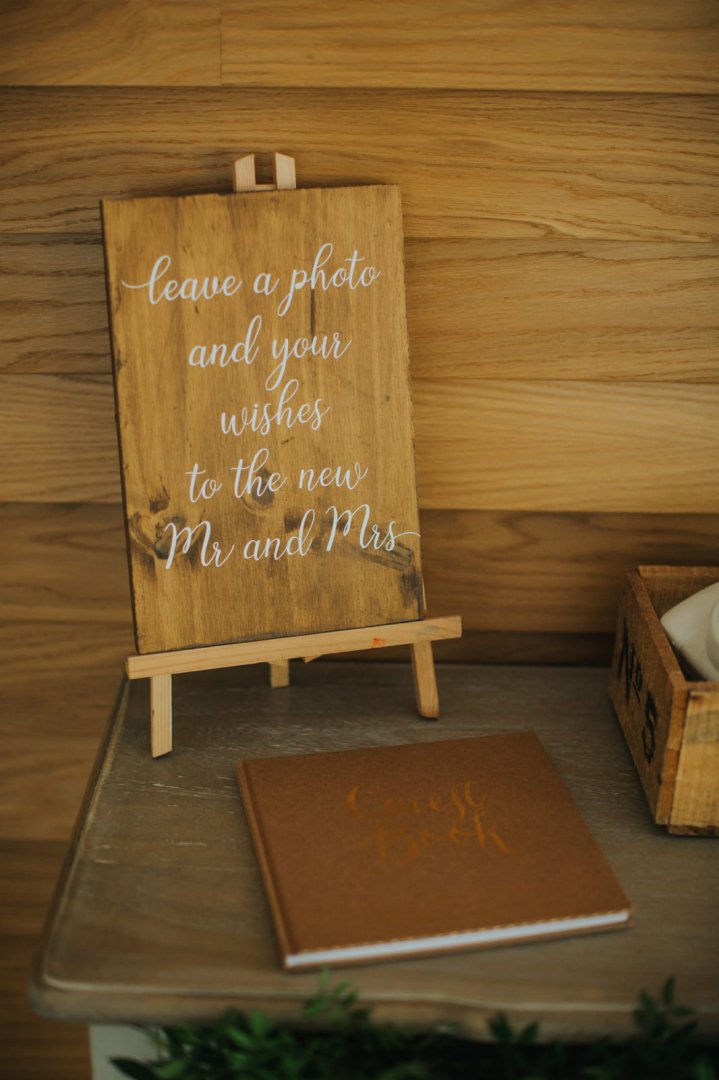 leave a photo
and your
wishes
to the new
Mr and Mrs
Guest
Book
Nº 5